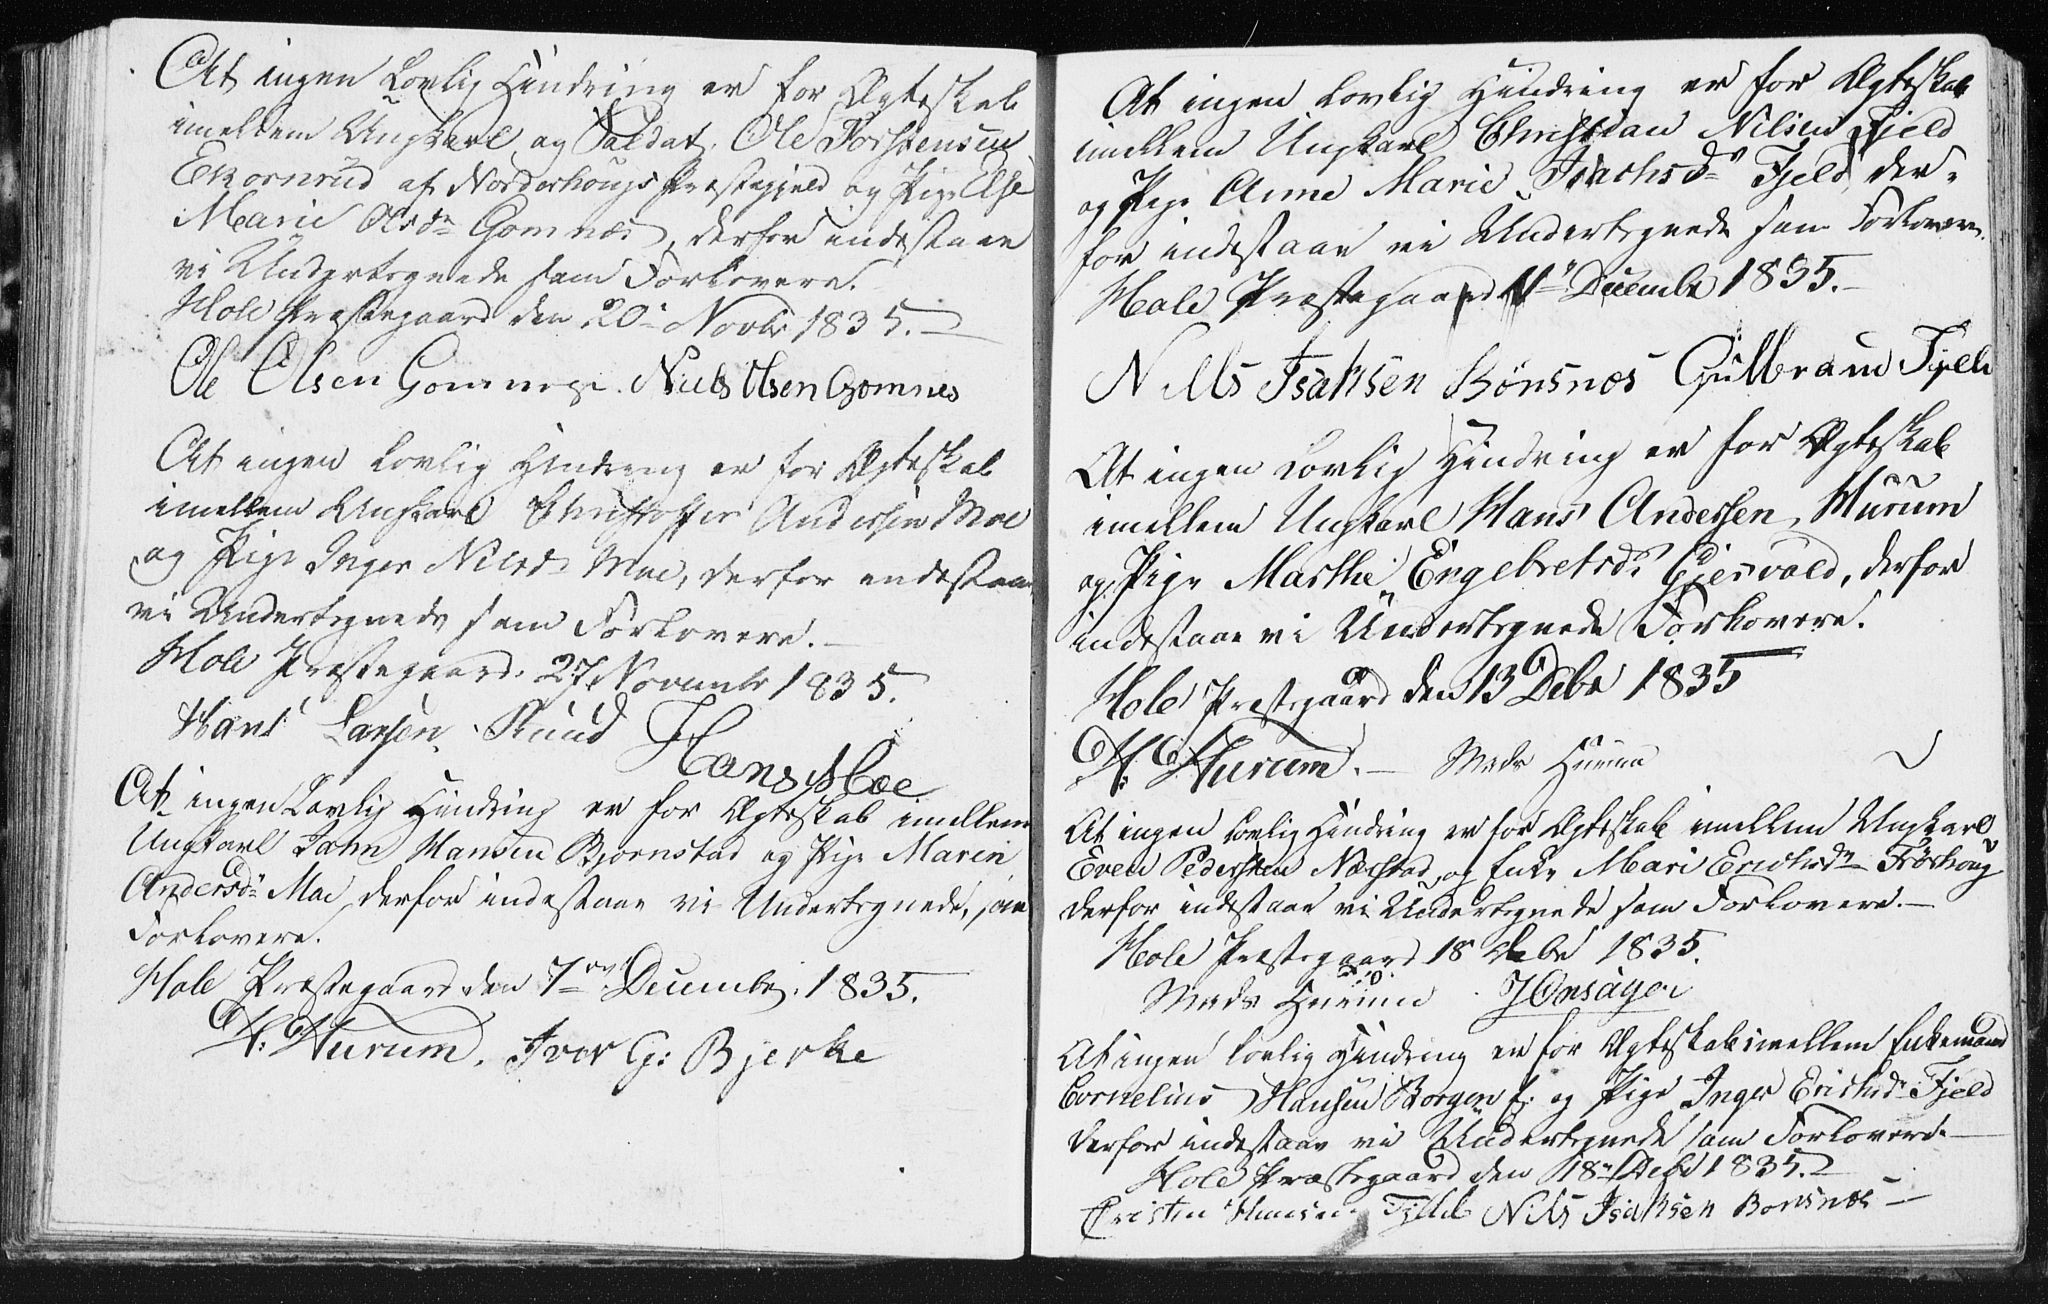 At ingen Lovlig Hindring er for Ægteskab
imellem Ungkarl og Soldat, Ole Torstensen
Ekornrud af Norderhougs Præstegjeld og Pige Else
Marie Olsdr Gomnæs, derfor indestaae
vi Undertegnede som Forlovere.
Hole Præstegaard den 20de Novbr 1835.
Ole Olsen Gomnes. Niels Olsen Gomnes
At ingen Lovlig Hindring er for Ægteskab
imellem Ungkarl Christoffer Andersen Moe
og Pige Inger Nilsdr Moe, derfor indestaae
vi Undertegnede som Forlovere.
Hole Præstegaard. 27 Novembr 1835.
Hans Larsen Ruud Hans Moe
At ingen Lovlig Hindring er for Ægteskab imellem
Ungkarl John Hansen Bjørnstad og Pige Maren
Andersdr Moe, derfor indestaae vi Undertegnede, som
Forlovere.
Hole Præstegaard den 7de Decembr. 1835.
H: Hurum. Iver G: Bjerke
At ingen Lovlig Hindring er for Ægteskab
imellem Ungkarl Christian Nilsen Fjeld
og Pige Anne Marie Isachsdr Fjeld der-
for indestaae vi Undertegnede som Forlovere.
Hole Præstegaard 11te Decembr 1835.
Nills Isaksen Bönsnæs Gulbrand Fjeld
At ingen Lovlig Hindring er for Ægteskab
imellem Ungkarl Hans Anderssen, Hurum
og Pige Marthe Engebretsdr Gjesvold, derfor
indestaae vi Undertegnede Forlovere.
Hole Præstegaard den 13 Debr 1835
H: Hurum. Mads Hurum
At ingen Lovlig Hindring er for Ægteskab imellem Ungkarl
Even Pedersen Næsstad, og Enke Mari Erichsdr Frøshoug
derfor indestaae vi Undertegnede som Forlovere.
Hole Præstegaard 18 Debr 1835.
Mads Hurum. J Onsager
At ingen Lovlig Hindring er for Ægteskab imellem Enkemand
Cornelius Hansen Borgen E: og Pige Inger Erichsdr Fjeld
derfor indestaae vi Undertegnede som Forlovere
Hole Præstegaard den 18de Debr 1835.
Cristen Hansen Fjeld Nils Isaksen Bonsnæs